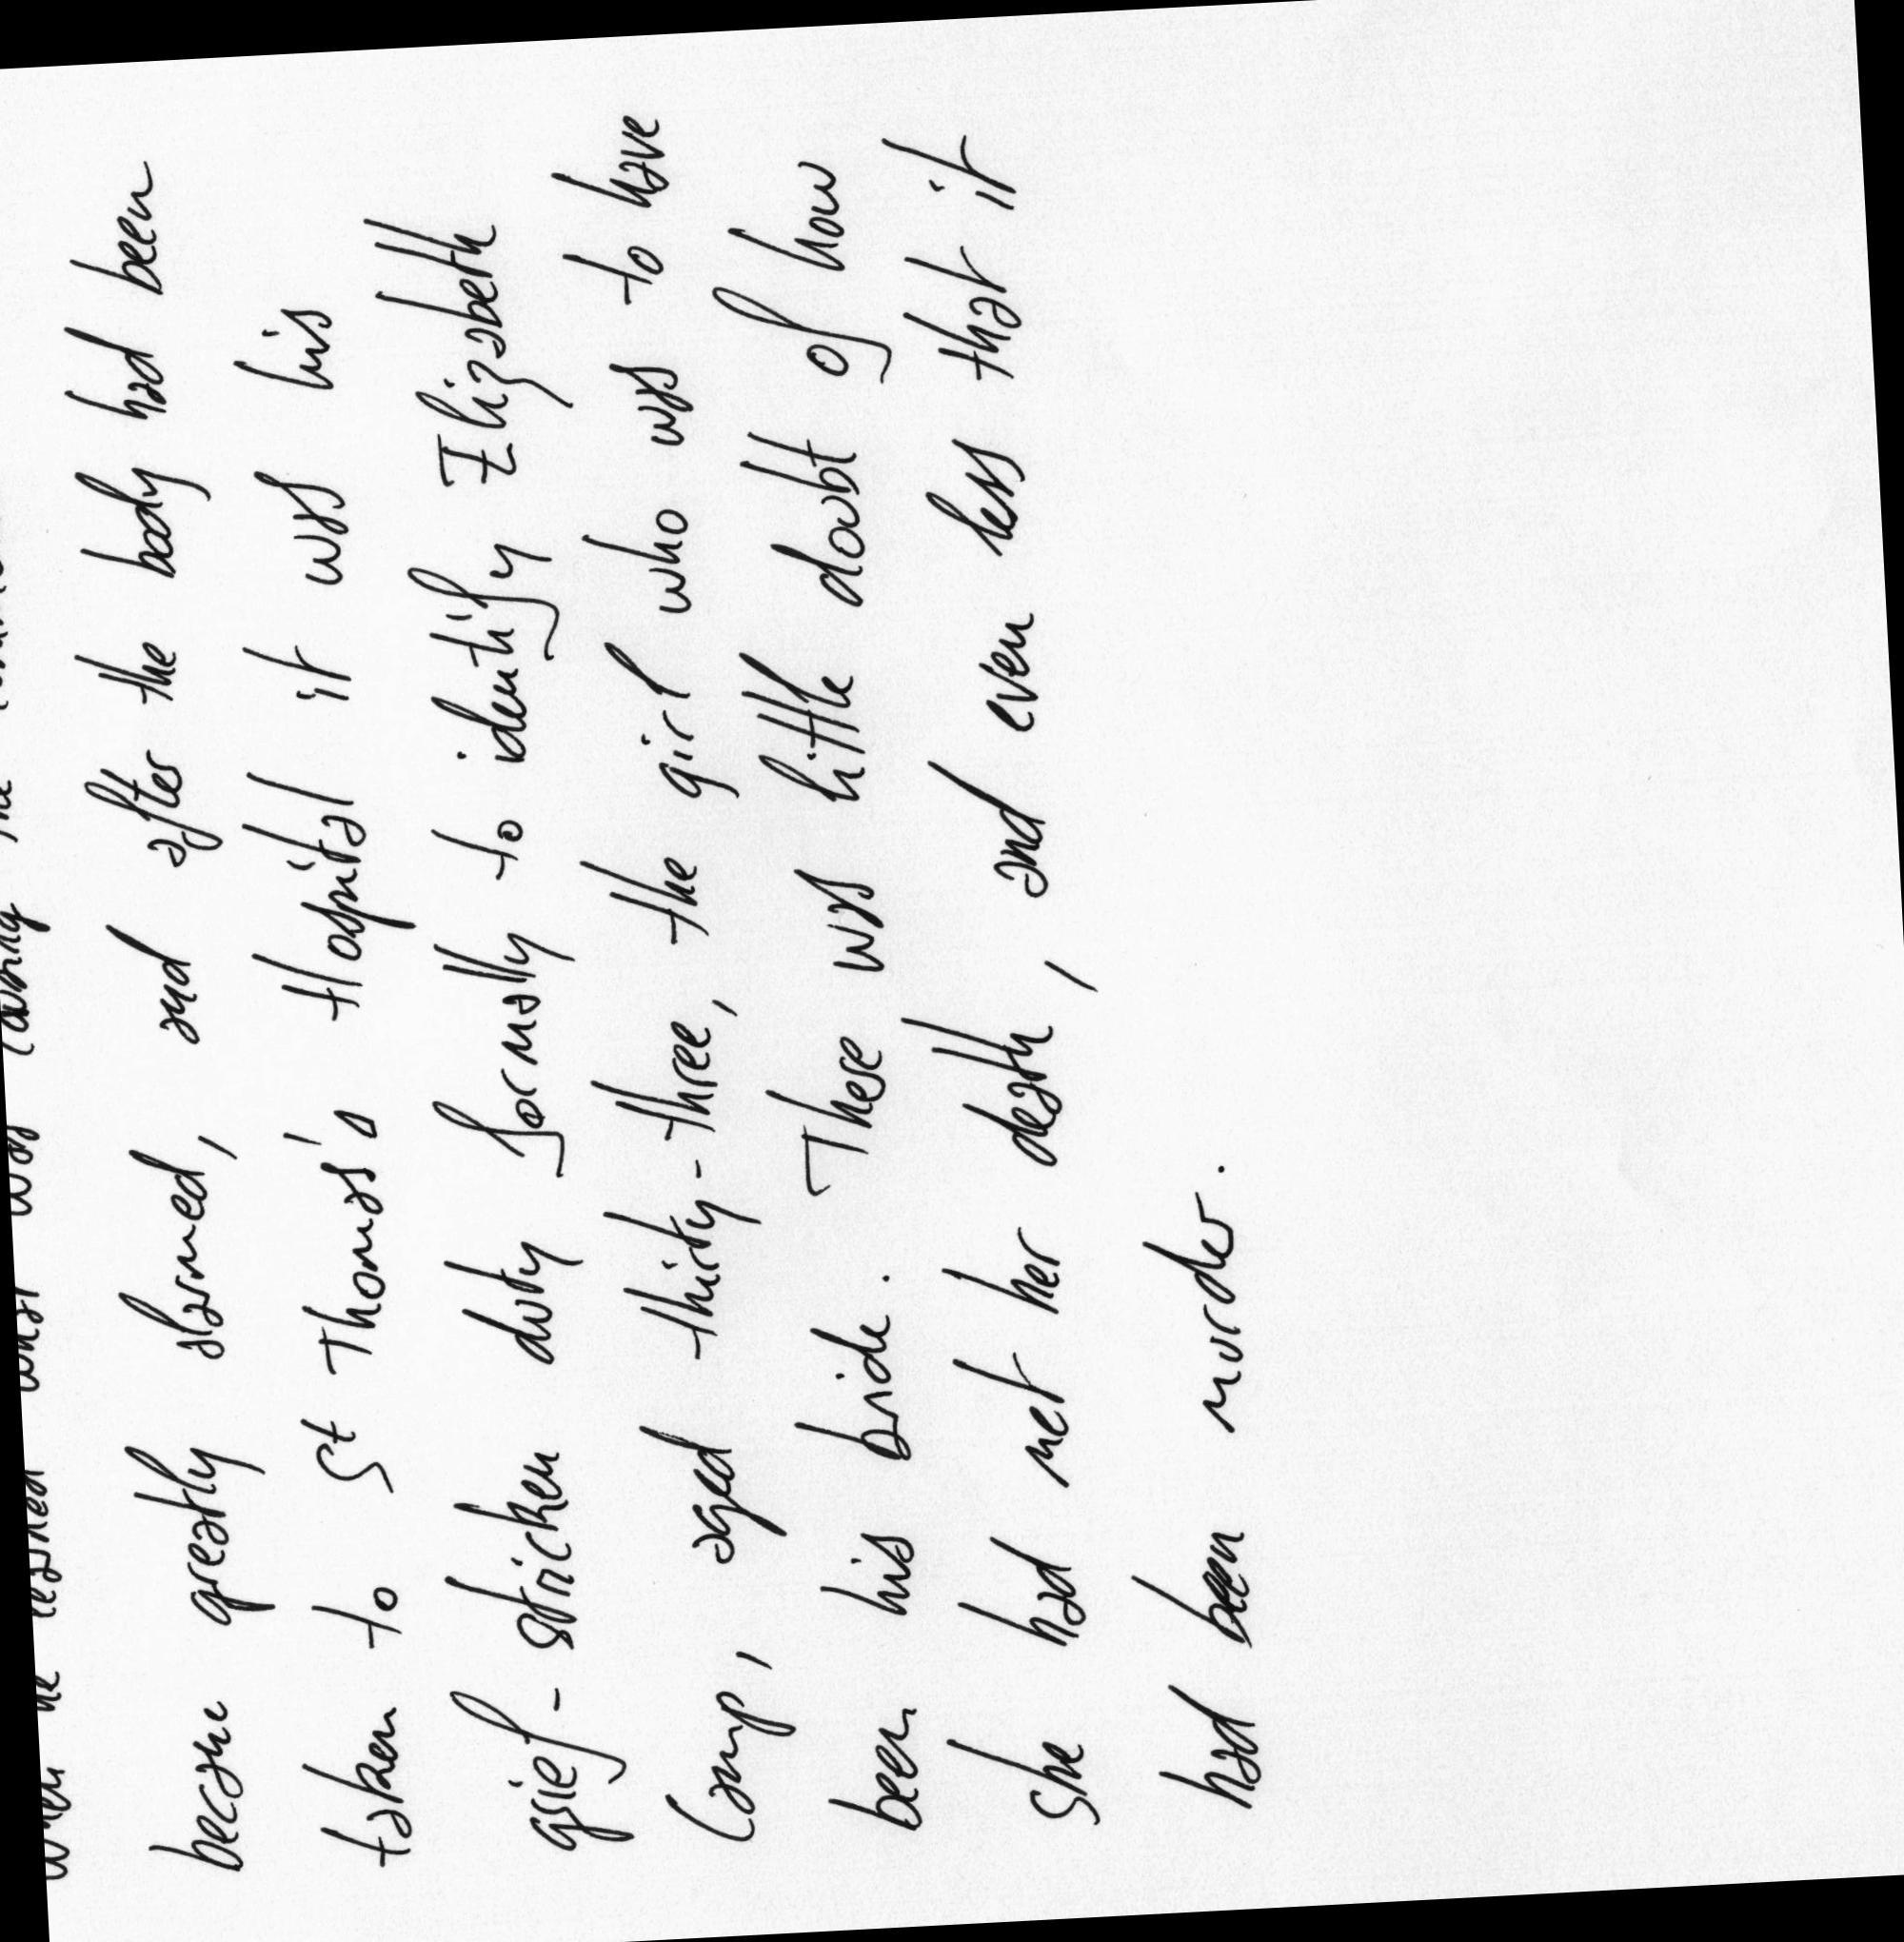 when he learned what was
became greatly alarmed, and after the body had been
taken to St Thomas's Hospital it was his
grief-stricken duty formally to identify Elizabeth
Camp, aged thirty-three, the girl who was to have
been his bride. There was little doubt of how
she had met her death, and even less that it
had been murder.